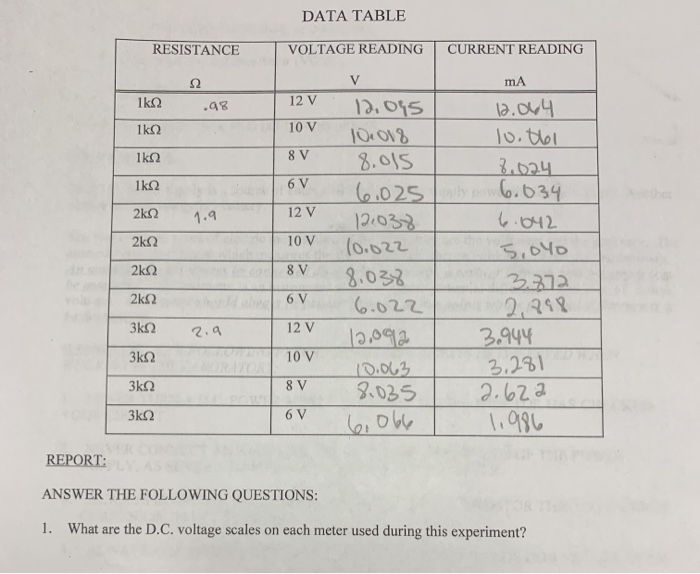 DATA TABLE
RESISTANCE VOLTAGE READING CURRENT READING
Ω V mA
1kΩ .98 12 V 12.045 12.064
1kΩ 10 V 10.018 10.061
1kΩ 8 V 8.015 8.024
1kΩ 6 V 6.025 6.034
2kΩ 1.9 12 V 12.038 6.042
2kΩ 10 V 10.022 5.040
2kΩ 8 V 8.038
2kΩ 6 V 6.022 2.998
3kΩ 2.9 12 V 12.092 3.944
3kΩ 10 V 10.063 3.281
3kΩ 8 V 8.035 2.622
3kΩ 6 V 6.066 1.986
REPORT:
ANSWER THE FOLLOWING QUESTIONS:
1. What are the D.C. voltage scales on each meter used during this experiment?